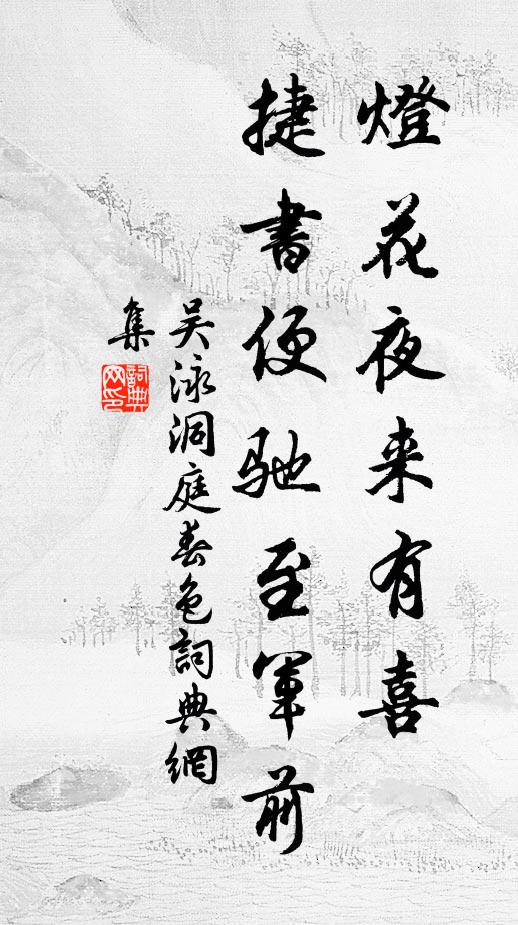 燈花夜来有喜
捷書便馳至軍前
吴泳洞庭春色詞典網
集
詞典
网印